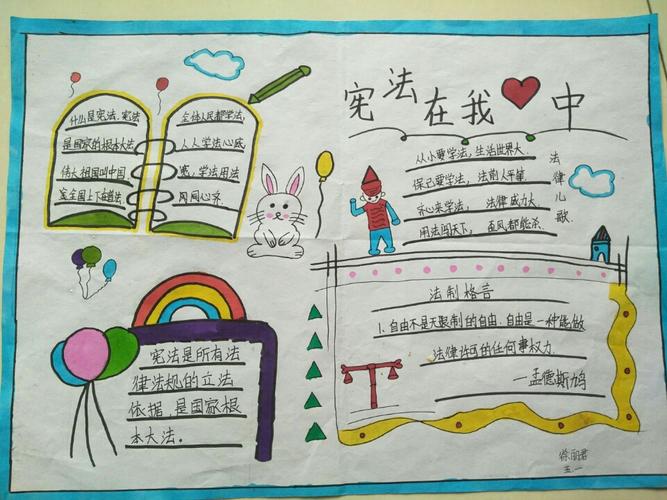 宪法在我中
什么是宪法,宪法
是国家的根本大法
伟大祖国叫中国
全国上下
全体人民都学法,
人人学法心底
宽,学法用法
从小要学法,生活世界大.
保己要学法, 法前人平等
齐心来学法, 法律威力大,
用法闯天下, 歪风都能杀.
法律儿歌
法制格言
1.自由不是无限制的自由,自由是一种能做
法律许可的任何事权力.
—孟德斯鸠
宪法是所有法
律法规的立法
依据,是国家根
本大法.
徐丽君
五.一